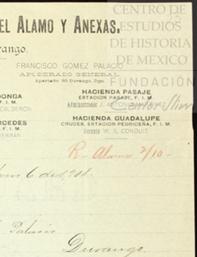 EL ALAMO Y ANEXAS.
CENTRO DE
ESTUDIOS
DE HISTORIA
DE MEXICO
FUNDACIÓN
rango.
FRANCISCO GOMEZ PALACIO
APODERADO GENERAL
Apartado 85 Durango, Dgo.
DONGA
F. I. M.
HACIENDA PASAJE
ESTACION PASAJE, F. I. M.
RCEDES
F. I. M.
HACIENDA GUADALUPE
CRUCES, ESTACION PEDRICEÑA, F. I. M.
W. S. CONDUIT
R- Alamo 2/10-
6 de
Palacio
Durango